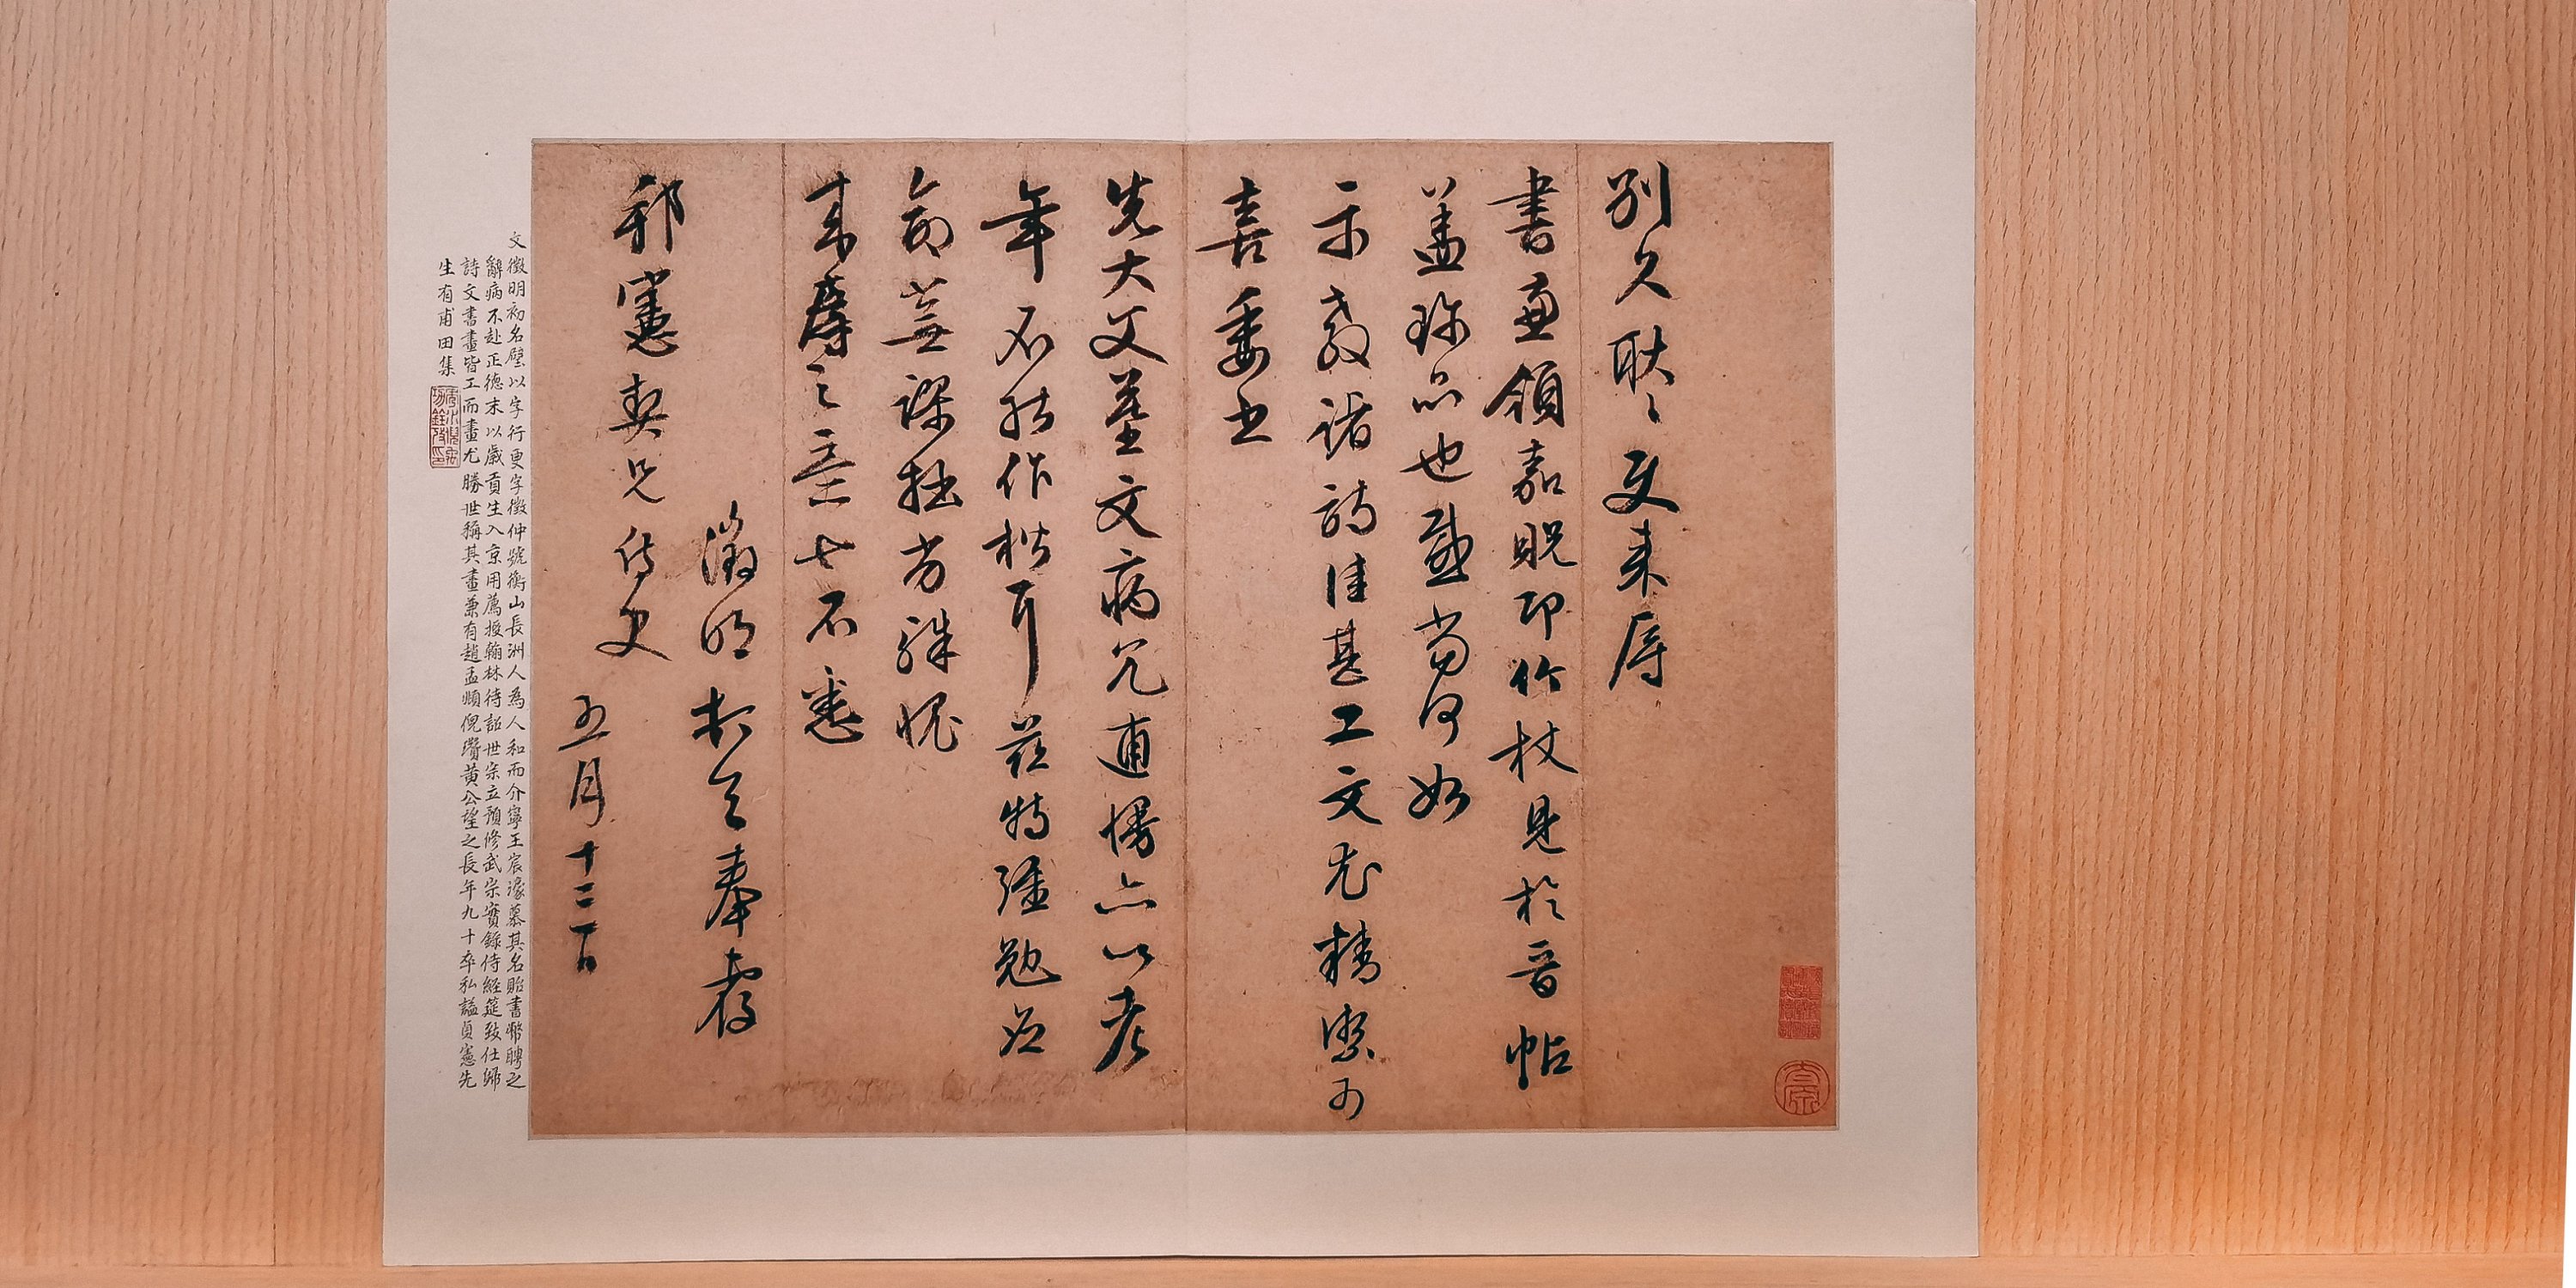 別久耿耿使來辱
書兼領嘉貺邛竹杖見於晉帖
蓋珍品也感當何如
示教諸詩佳甚工文尤精密可
喜委書
先大父墓文病冗連慢亦以老
年不能作楷耳茲特彊勉為
命蕪謬拙劣殊愧
來辱之意七不悉
徵明頓首奉覆
祁憲契兄侍史
五月十三日
文徵明初名璧以字行更字徵仲號衡山長洲人為人和而介寧王宸濠慕其名貽書幣聘之
辭病不赴正德末以歲貢生入京用薦授翰林待詔世宗立預修武宗實錄侍經筵致仕歸
詩文書畫皆工而畫尤勝世稱其畫兼有趙孟頫倪瓚黃公望之長年九十卒私謚貞憲先
生有甫田集